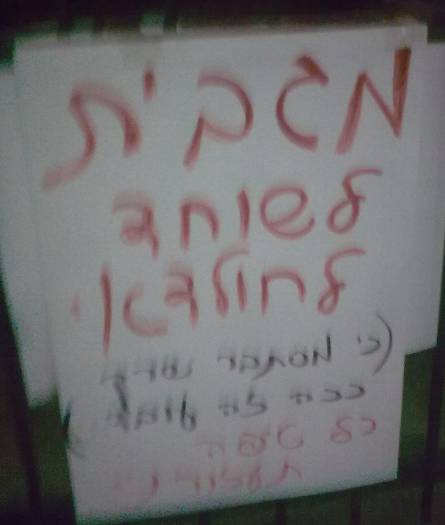 מגבית
לשוחד
לחולדאי
(כי מסתבר שרק
ככה זה עובד)
כל